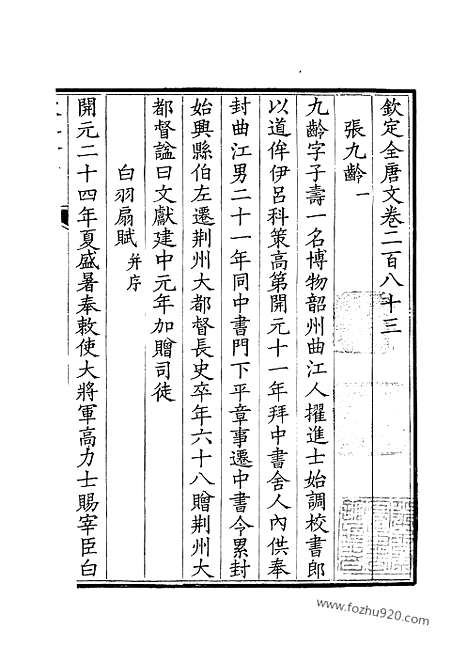 欽定全唐文卷二百八十三
張九齡一
九齡字子壽一名博物韶州曲江人擢進士始調校書郎
以道侔伊呂科策高第開元十一年拜中書舍人內供奉
封曲江男二十一年同中書門下平章事遷中書令累封
始興縣伯左遷荆州大都督長史卒年六十八贈荆州大
都督謚曰文獻建中元年加贈司徒
白羽扇賦并序
開元二十四年夏盛暑奉敕使大將軍高力士賜宰臣白
www.fozhu920.com